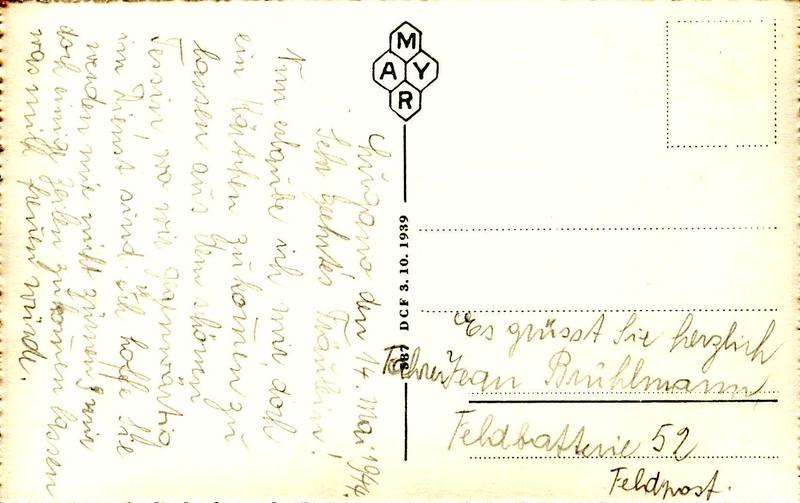 Lugano, den 14. Mai 1940.
Sehr geehrtes Fräulein!
Nun erlaube ich mir, doch
ein Kärtchen zukommen zu
lassen aus dem schönen
Tessin, wo wir gegenwärtig
im Dienst sind. Ich hoffe Sie
werden mir nicht zürnen, mir
doch einige Zeilen zukommen lassen
was mich freuen würde.
MAYR
887 DCF 3. 10. 1939
Es grüsst Sie herzlich
Fahrer Jean Brühlmann,
Feldbatterie 52
Feldpost.